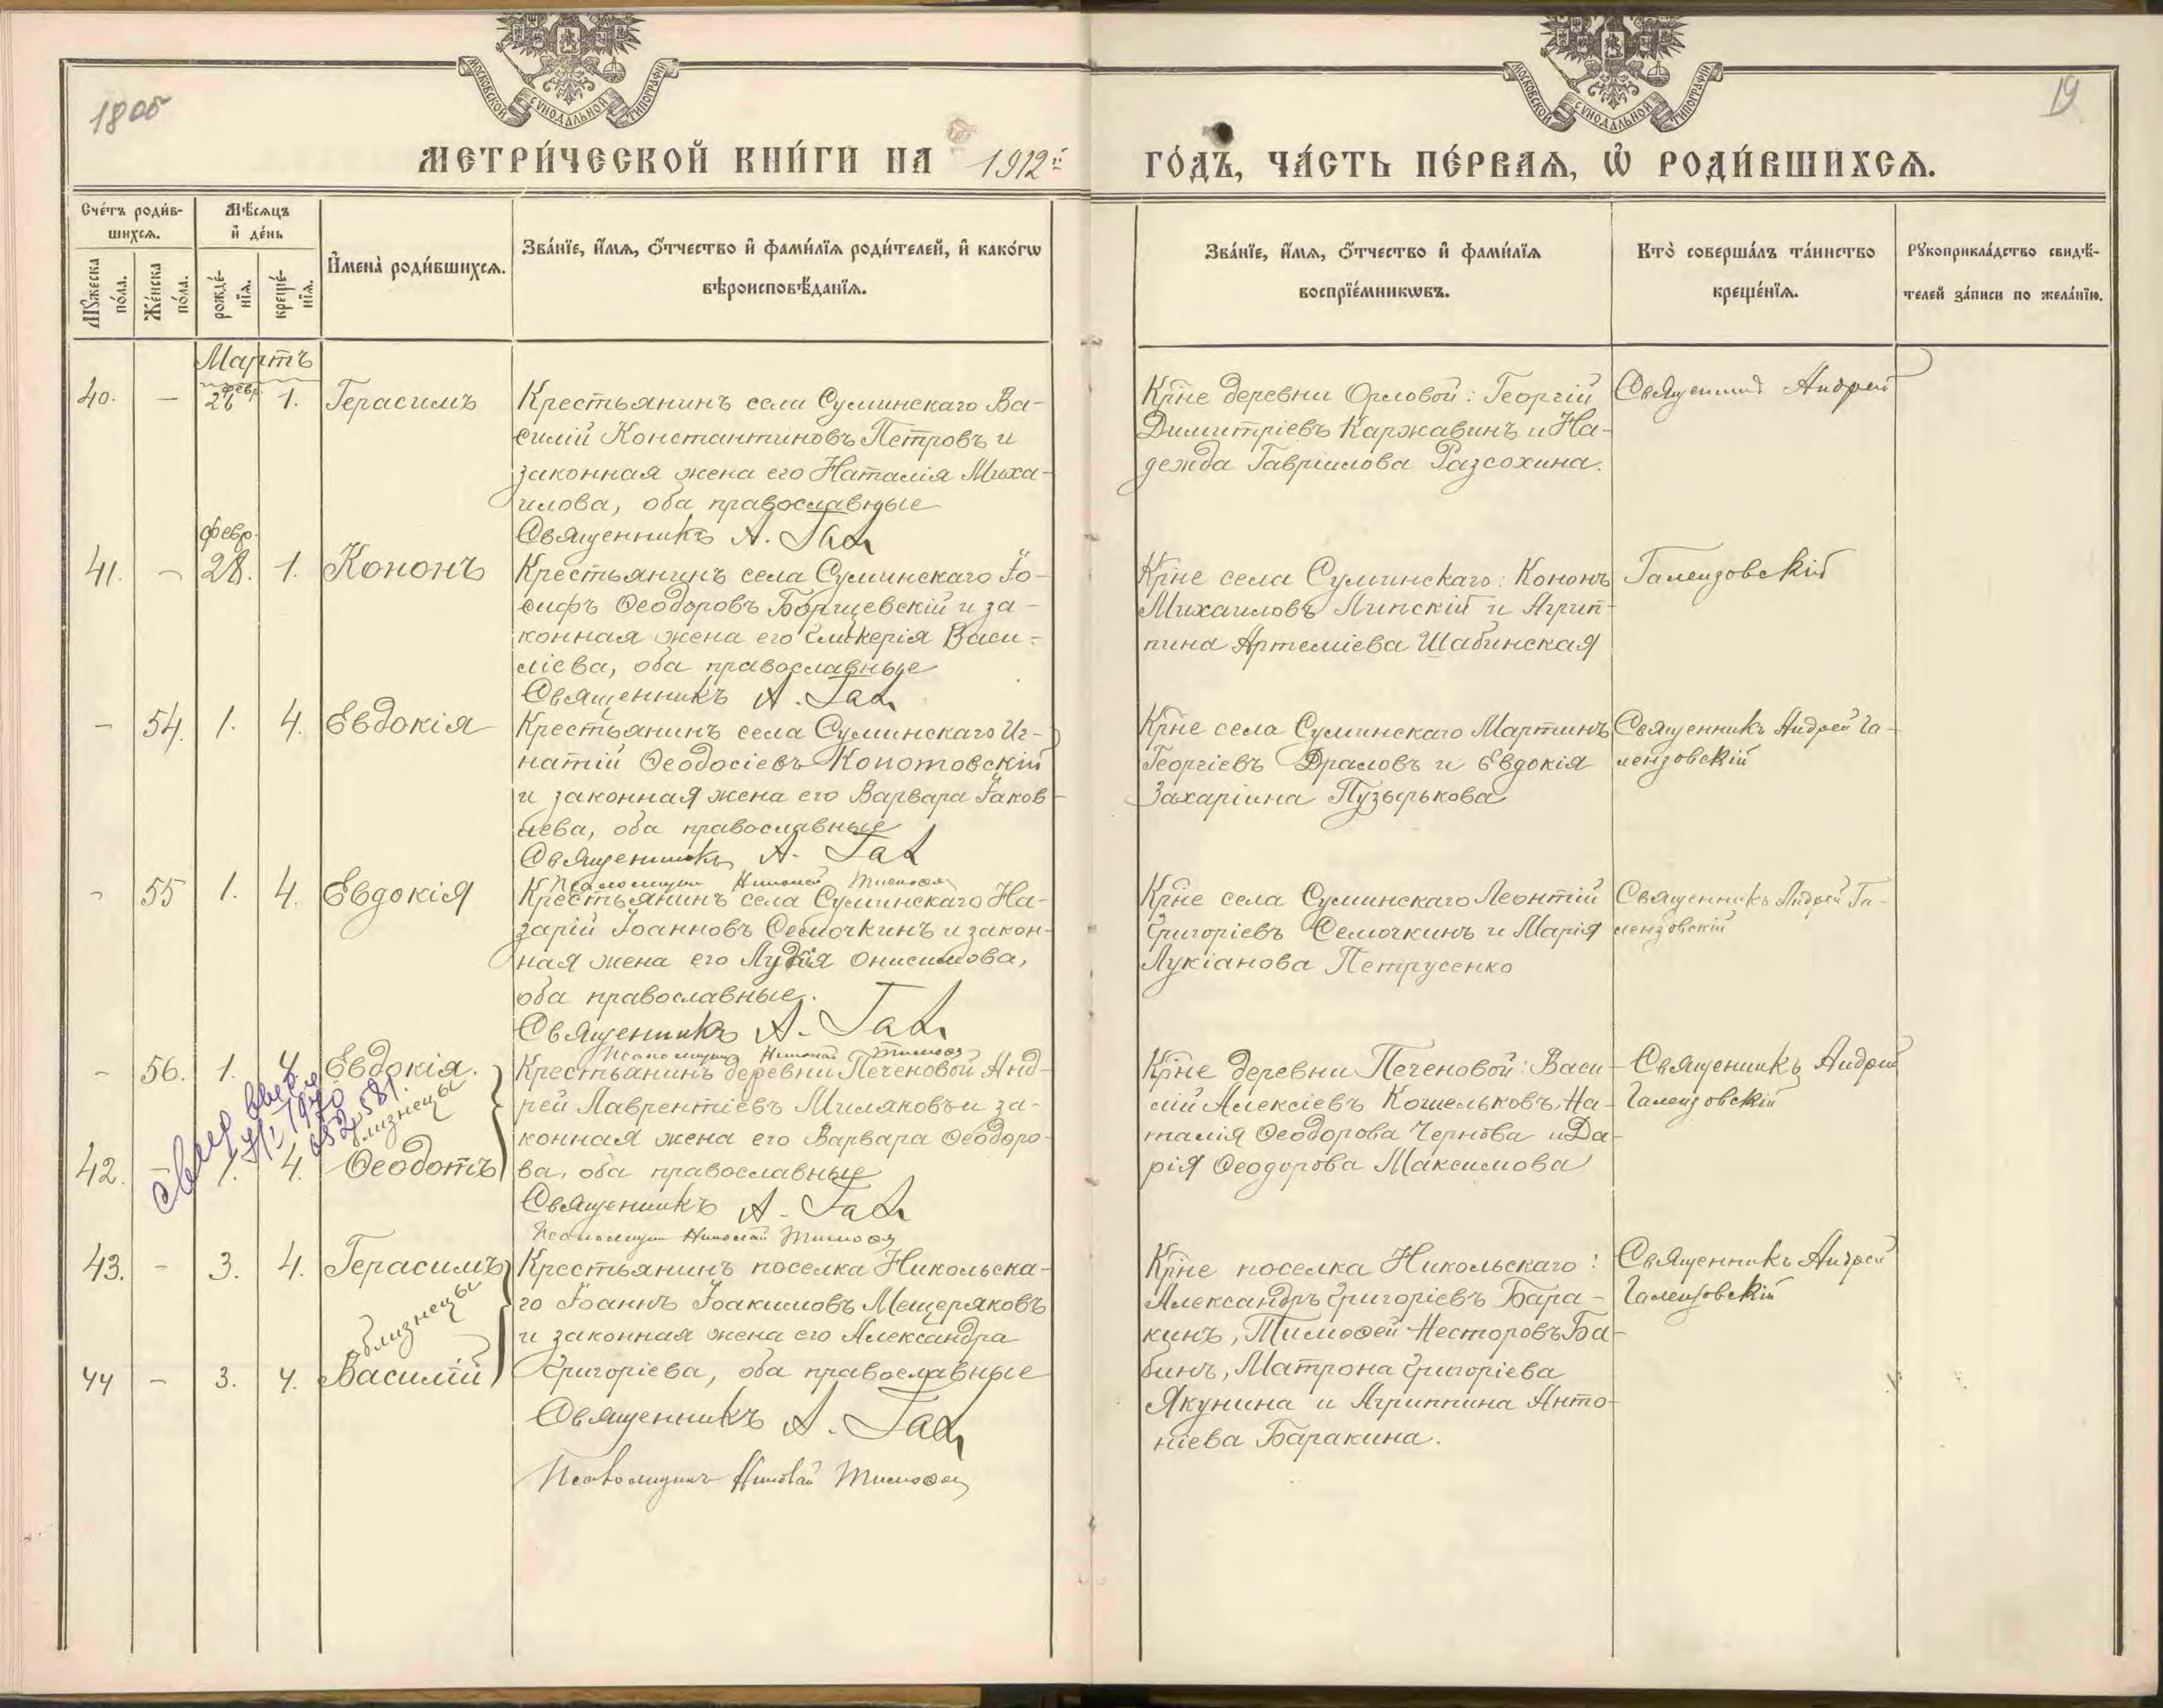 МОСКОВСКОЙ СУНОДАЛЬНОЙ ТИПОГРАФІИ
МОСКОВСКОЙ СУНОДАЛЬНОЙ ТИПОГРАФІИ
19
МЕТРИ́ЧЕСКОЙ КНИ́ГИ НА 1912й ГО́ДЪ, ЧА́СТЬ ПЕ́РВАѦ, Ѡ҆ РОДИ́ВШИХСѦ.
Сче́тъ роди́в-
шихсѧ.
Мѣ́сѧцъ
и҆ де́нь
Мꙋ́жеска
по́ла.
Же́нска
по́ла.
рожде́-
нїѧ.
креще́-
нїѧ.
И҆мена̀ роди́вшихсѧ.
Зва́нїе, и҆́мѧ, о҆́тчество и҆ фами́лїѧ роди́телей, и҆ како́гѡ
вѣроисповѣ́данїѧ.
Зва́нїе, и҆́мѧ, о҆́тчество и҆ фами́лїѧ
воспрїе́мникѡвъ.
Кто̀ соверша́лъ та́инство
креще́нїѧ.
Рꙋкоприкла́дство свидѣ́-
телей за́писи по жела́нїю.
Мартъ
февр.
40. — 26 1. Герасимъ
Крестьянинъ села Суминскаго Ва-
силій Константиновъ Петровъ и
законная жена его Наталія Миха-
илова, оба православные
Священникъ А. Гал
Кр҃не деревни Орловой: Георгій
Димитріевъ Каржавинъ и На-
дежда Гавріилова Разсохина.
Священникъ Андрей
февр.
41. — 28. 1. Кононъ
Крестьянинъ села Суминскаго Іо-
сифъ Ѳеодоровъ Борщевскій и за-
конная жена его Гликерія Васи-
ліева, оба православные
Священникъ А. Гал
Кр҃не села Суминскаго: Кононъ
Михаиловъ Липскій и Агрип-
пина Артеміева Шабинская
Галензовскій
— 54. 1. 4. Евдокія
Крестьянинъ села Суминскаго Иг-
натій Ѳеодосіевъ Копотовскій
и законная жена его Варвара Іаков-
лева, оба православные
Священникъ А. Гал
Псаломщикъ Николай Тимоѳ
Кр҃не села Суминскаго Мартинъ
Георгіевъ Драловъ и Евдокія
Захаріина Пузырькова
Священникъ Андрей Га-
лензовскій
— 55 1. 4. Евдокія
Крестьянинъ села Суминскаго На-
зарій Іоанновъ Семочкинъ и закон-
ная жена его Лудія Онисимова,
оба православные.
Священникъ А. Гал
Псаломщикъ Николай Тимоѳ
Кр҃не села Суминскаго Леонтій
Григоріевъ Семочкинъ и Марія
Лукіанова Петрусенко
Священникъ Андрей Га-
лензовскій
— 56. 1. 4. Евдокія.
близнецы
42. 1. 4. Ѳеодотъ
Крестьянинъ деревни Печеновой Анд-
рей Лаврентіевъ Миляковъ и за-
конная жена его Варвара Ѳеодоро-
ва, оба православные
Священникъ А. Гал
Псаломщикъ Николай Тимоѳ
Кр҃не деревни Печеновой: Васи-
лій Алексіевъ Кошельковъ, На-
талія Ѳеодорова Чернова и Да-
рія Ѳеодорова Максимова
Священникъ Андрей
Галензовскій
43. — 3. 4. Герасимъ
близнецы
44 — 3. 4. Василій
Крестьянинъ поселка Никольска-
го Іоаннъ Іоакимовъ Мещеряковъ
и законная жена его Александра
Григоріева, оба православные
Священникъ А. Гал
Псаломщикъ Николай Тимоѳ
Кр҃не поселка Никольскаго:
Александръ Григоріевъ Бара-
кинъ, Тимоѳей Несторовъ Ба-
бинъ, Матрона Григоріева
Якунина и Агриппина Анто-
ніева Баракина.
Священникъ Андрей
Галензовскій